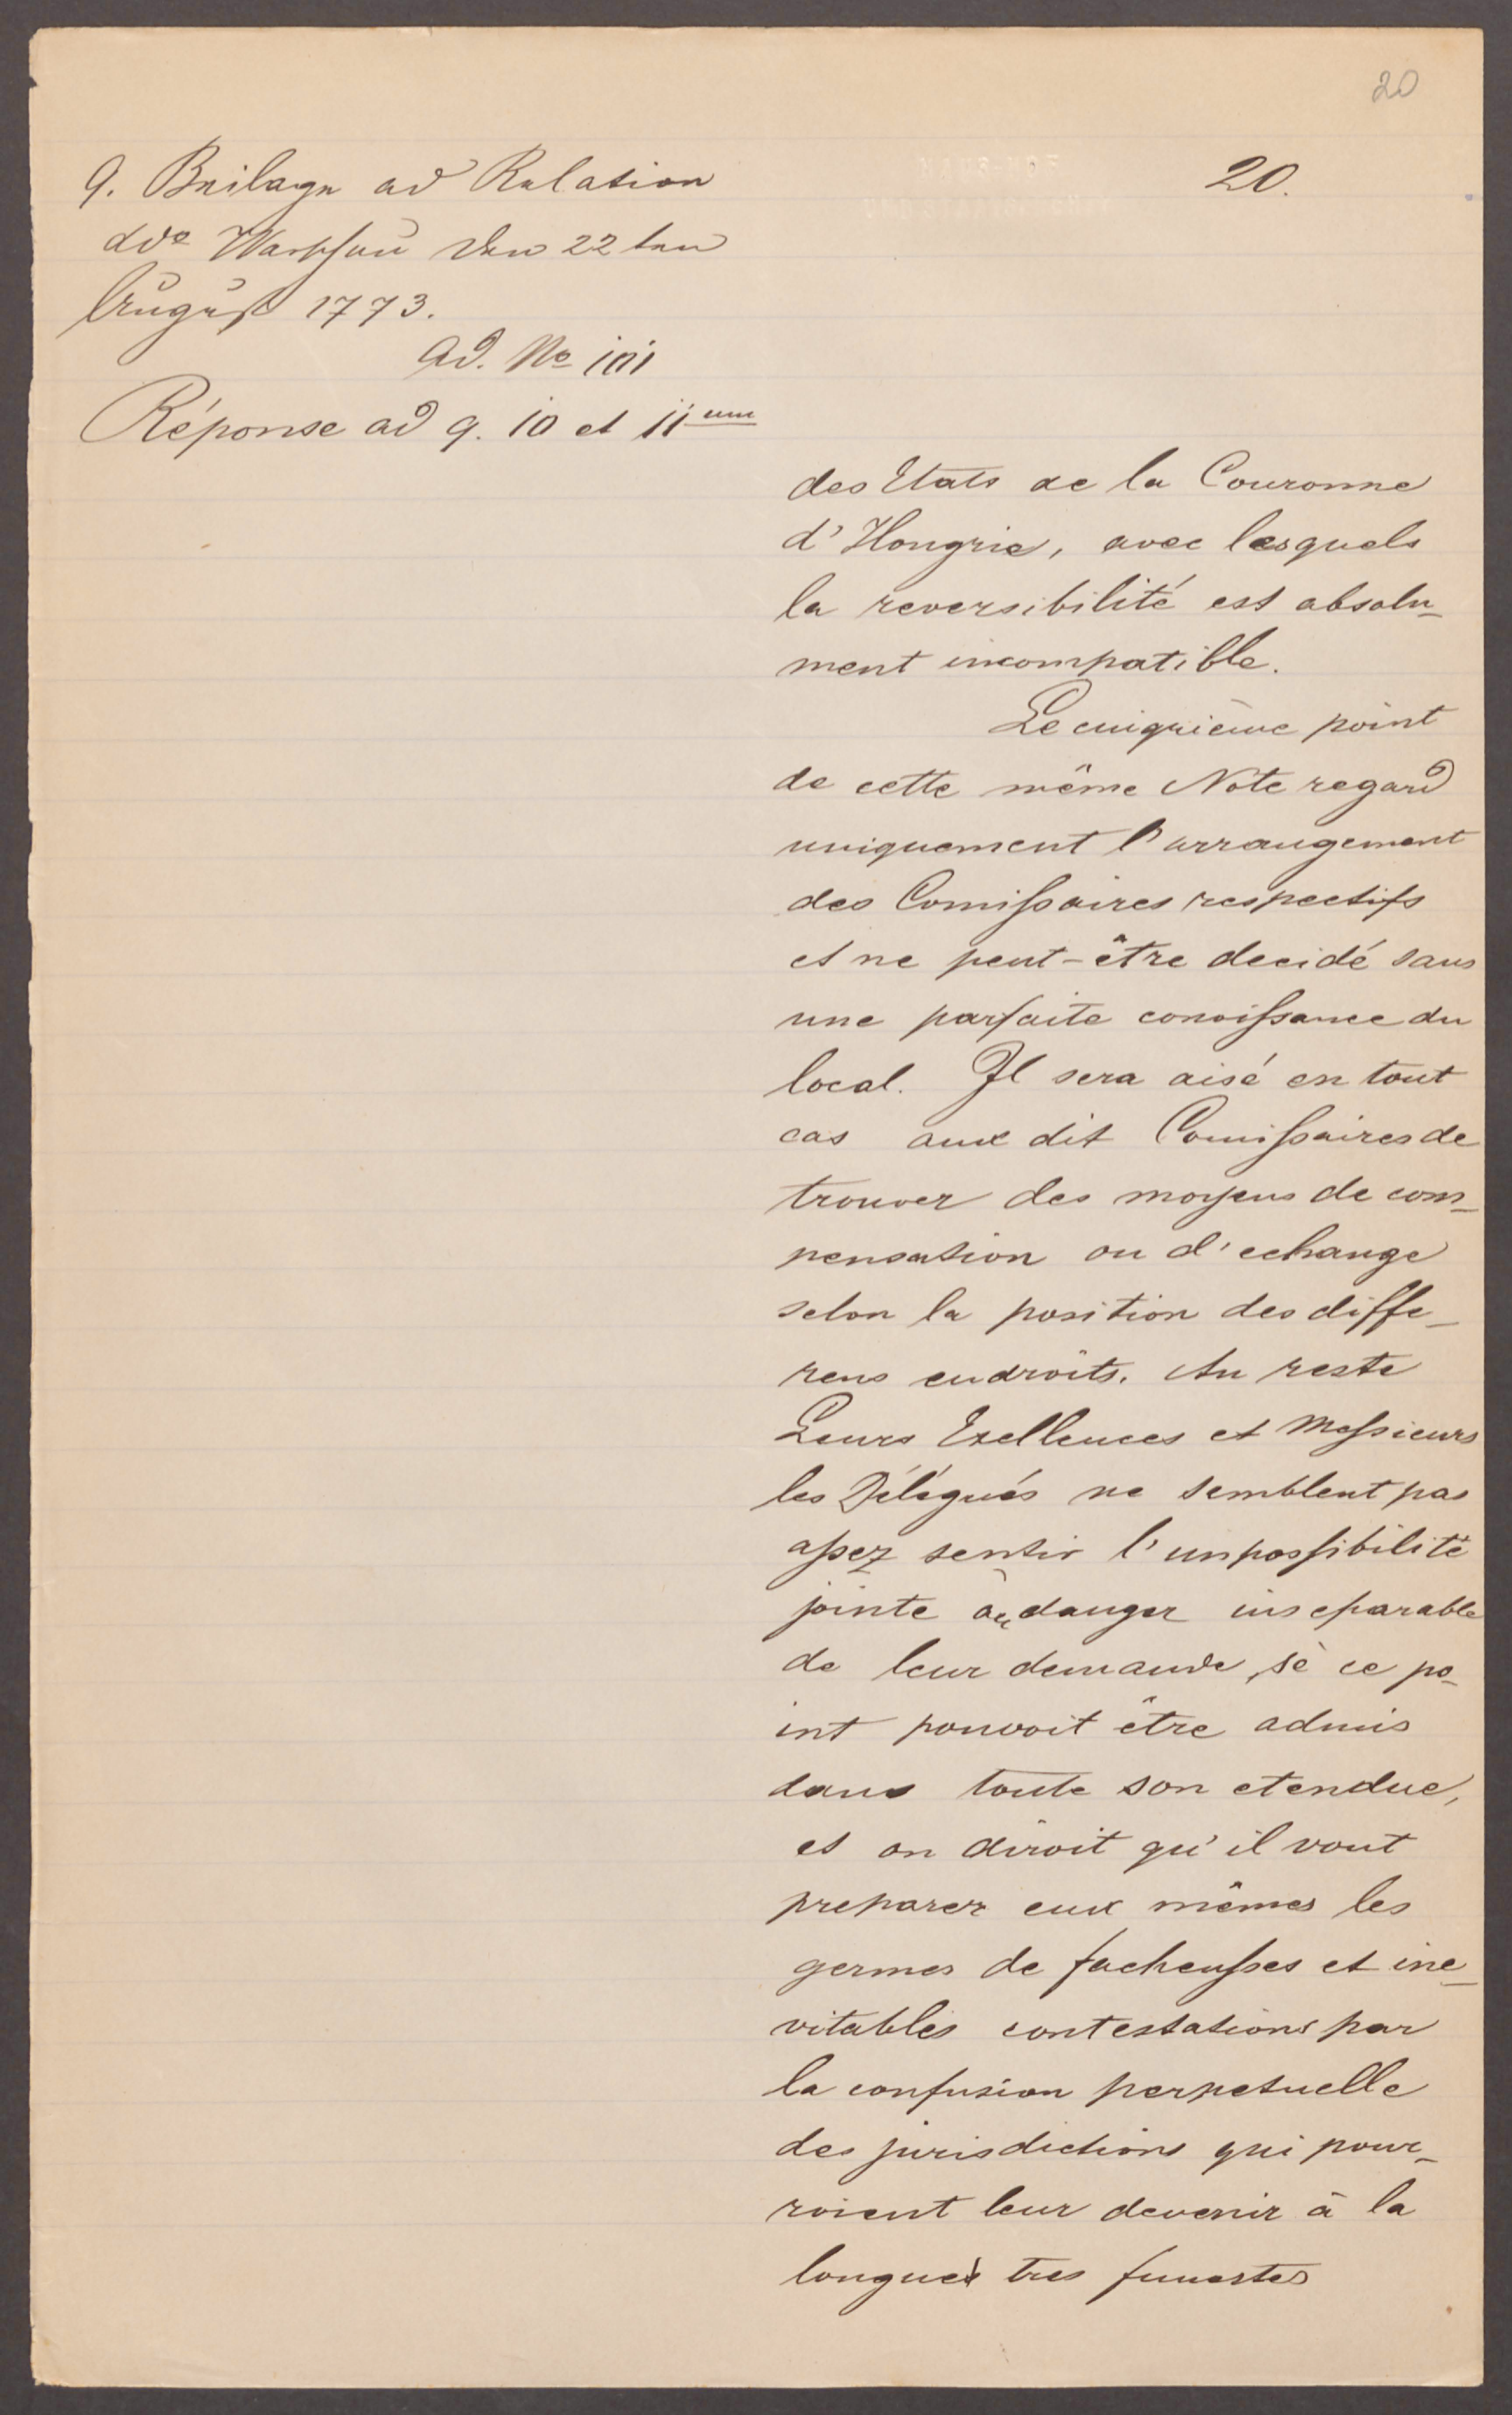 20
9. Beilage ad Relation
ddo Warschau den 22ten
August 1773.
20.
Ad. No 101
Réponse ad 9. 10 et 11um
des Etats de la Couronne
d'Hongrie, avec lesquels
la reversibilité est absolu-
ment incompatible.
Le cinquième point
de cette même Note regard
uniquement l'arrangement
des Comissaires respectifs
et ne peut-être decidé sans
une parfaite conoissance du
local. Il sera aisé en tout
cas aux dit Comissaires de
trouver des moyens de com-
pensation ou d'echange
selon la position des diffe-
rens endroits. Au reste
Leurs Exellences et Messieurs
les Délégués ne semblent pas
assez sentir l'impossibilité
jointe au danger inseparable
de leur demande, sè ce po-
int pouvoit être admis
dans toute son etendue,
et on diroit qu'il vont
preparer eux mêmes les
germes de facheusses et ine-
vitables contestations par
la confusion perpetuelle
des jurisdictions qui pour-
roient leur devenir à la
longue tres funestes